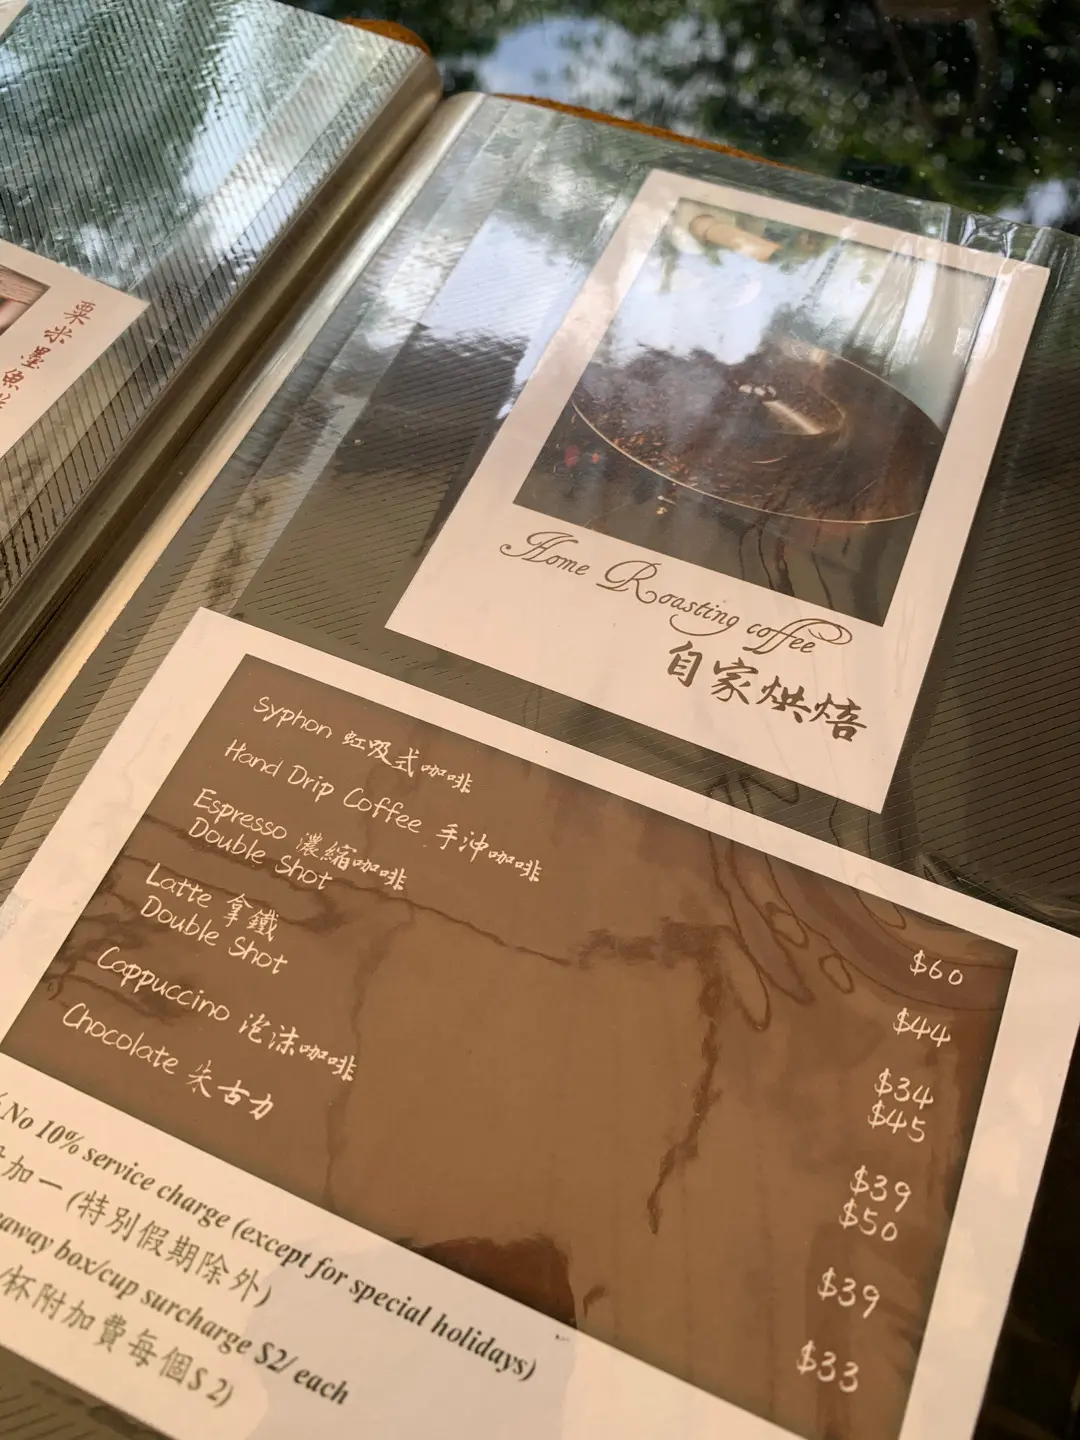 粟米墨魚
Home Roasting coffee
自家烘焙
Syphon 虹吸式咖啡 $60
Hand Drip Coffee 手沖咖啡 $44
Espresso 濃縮咖啡 $34
Double Shot $45
Latte 拿鐵 $39
Double Shot $50
Cappuccino 泡沫咖啡 $39
Chocolate 朱古力 $33
No 10% service charge (except for special holidays)
加一 (特別假期除外)
away box/cup surcharge $2/ each
/杯附加費每個$ 2)